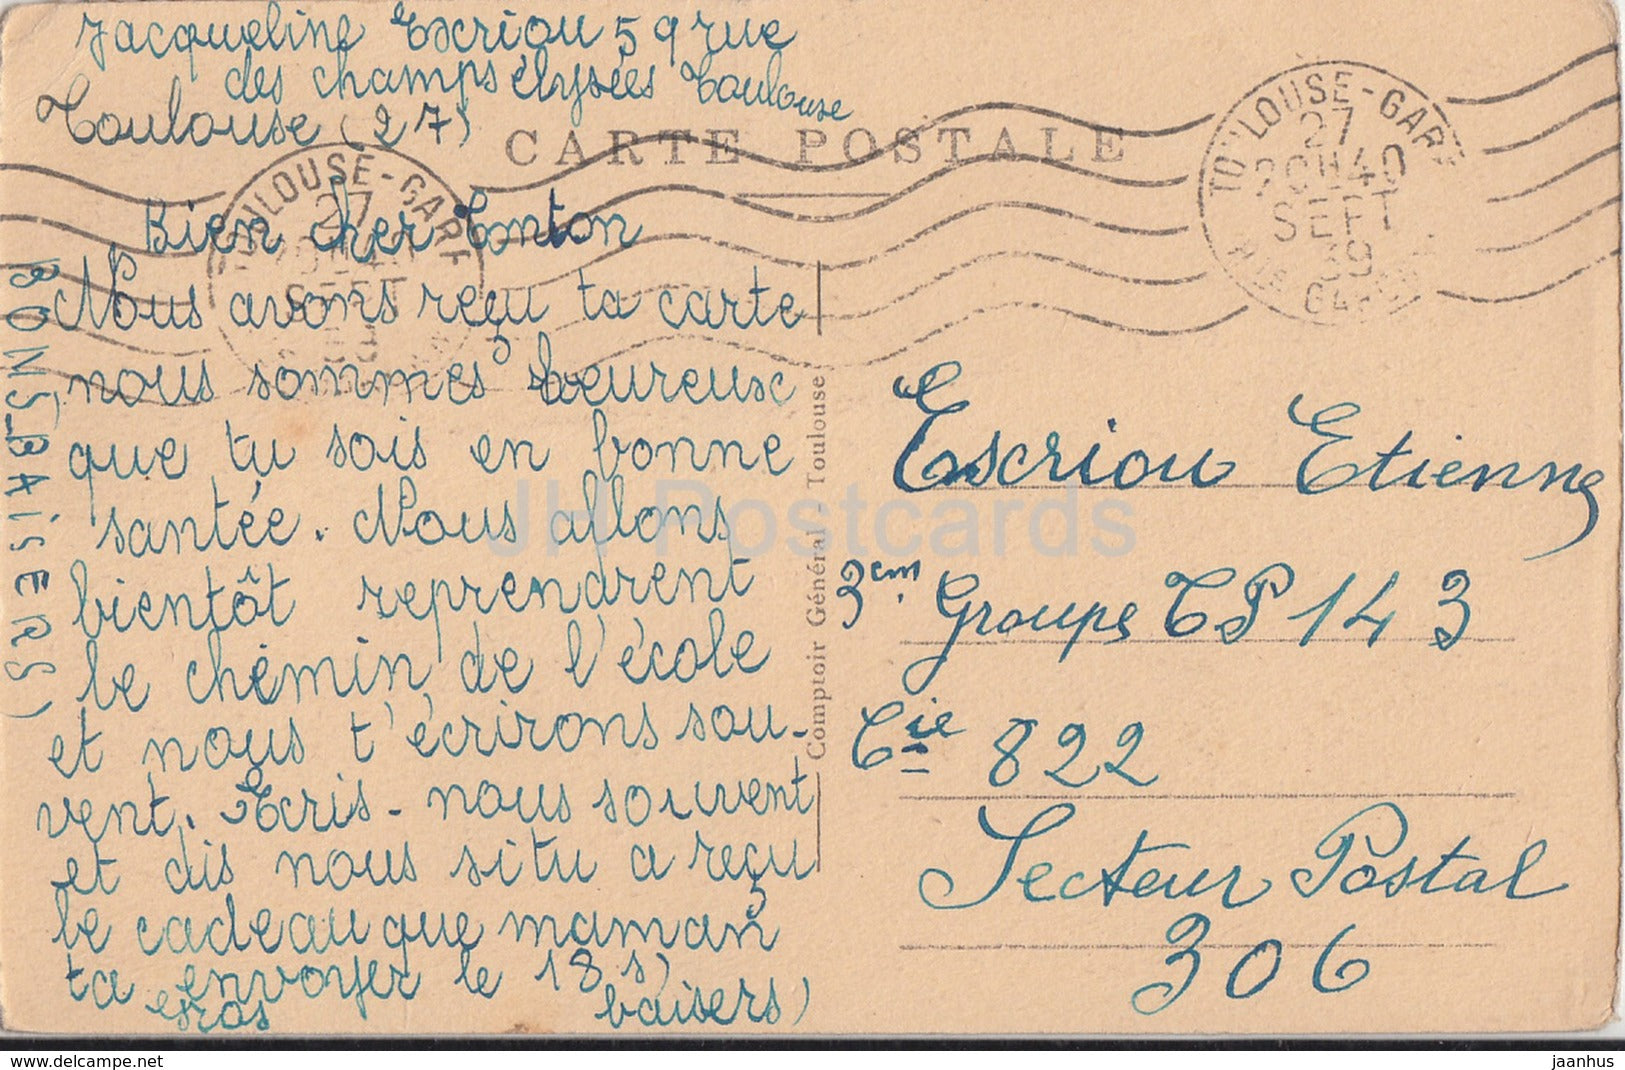 Jacqueline Escriou 59 rue
des champs élysées Toulouse
Toulouse (27)
CARTE POSTALE
TOULOUSE-GARE
27
20H40
SEPT
39
TOULOUSE-GARE
27
Bien cher Tonton
Nous avons reçu ta carte
nous sommes heureux
que tu sois en bonne
santée. Nous allons
bientôt reprendrent
le chémin de l'école
et nous t'écrirons sou-
vent. Ecris-nous souvent
et dis nous si tu a reçu
le cadeau que maman
ta envoyer le 18 s)
gros baisers)
BONS BAISERS)
Comptoir Général - Toulouse
Escriou Etienne
3em Groupe CP 143
Cie 822
Secteur Postal
306
JH Postcards
www.delcampe.net
jaanhus